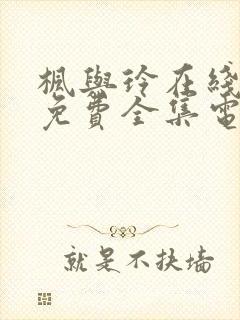 枫與玲在綫
免費全集電
就是不扶墙